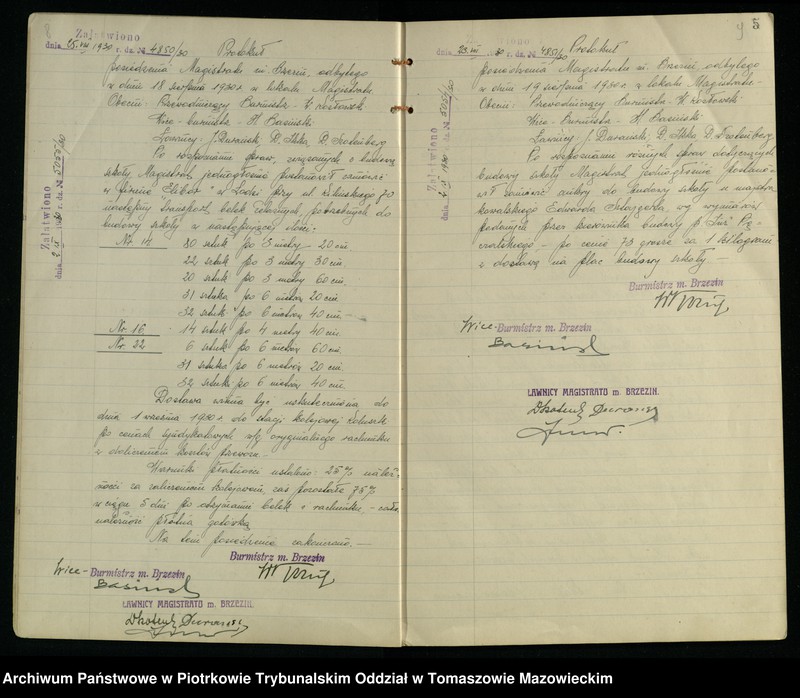 8
Załatwiono
dnia 25.VIII 1930 r. dz. № 4850/30
Protokuł
posiedzenia Magistratu m. Brzezin, odbytego
w dniu 18 sierpnia 1930 r. w lokalu Magistratu.
Obecni: Przewodniczący Burmistrz W. Kozłowski
Wice-burmistrz - H. Basiński
Ławnicy: J. Durański, D.
Po rozpoznaniu spraw, związanych z budową
szkoły, Magistrat jednogłośnie postanowił zamówić
w firmie w Łodzi przy ul. Kilińskiego 70
następujący transport belek żelaznych, potrzebnych do
budowy szkoły w następującej ilości:
Nr. 14 30 sztuk po 3 metry 20 cm.
22 sztuk po 3 metry 30 cm.
20 sztuk po 3 metry 60 cm.
31 sztuka po 6 metrów 20 cm.
32 sztuk po 6 metrów 40 cm.
Nr. 16 14 sztuk po 4 metry 40 cm.
Nr. 22 6 sztuk po 6 metrów 60 cm.
31 sztuka po 6 metrów 20 cm.
32 sztuk po 6 metrów 40 cm.
Dostawa winna być uskuteczniona do
dnia 1 września 1930 r. do stacji kolejowej Koluszki
po cenach syndykatowych wg. oryginalnego rachunku
z doliczeniem kosztów przewozu.
Warunki płatności ustalono: 25% należ-
ności za zaliczeniem kolejowem, zaś pozostałe 75%
w ciągu 5 dni po otrzymaniu belek i rachunku - cała
należność płatna gotówką.
Na tem posiedzenie zakończono.
Załatwiono
dnia 2.IX 1930 r. dz. № 5055/30
Burmistrz m. Brzezin
Wice-Burmistrz m. Brzezin
Basiński
ŁAWNICY MAGISTRATU m. BRZEZIN.
9 5
Załatwiono
dnia 23.VIII 1930 r. dz. № 4851/30
Protokuł
posiedzenia Magistratu m. Brzezin odbytego
w dniu 19 sierpnia 1930 r. w lokalu Magistratu.
Obecni: Przewodniczący Burmistrz - W. Kozłowski
Wice-Burmistrz - H. Basiński
Ławnicy: J. Durański, D.
Po rozpoznaniu różnych spraw dotyczących
budowy szkoły Magistrat jednogłośnie postano-
wił zamówić do budowy szkoły u majstra
kowalskiego Edwarda wg. wymiarów
podanych przez kierownika budowy p. Inż.
- po cenie 73 grosze za 1 kilogram
z dostawą na plac budowy szkoły.
Załatwiono
Burmistrz m. Brzezin
Wice-Burmistrz m. Brzezin
Basiński
ŁAWNICY MAGISTRATU m. BRZEZIN.
Archiwum Państwowe w Piotrkowie Trybunalskim Oddział w Tomaszowie Mazowieckim